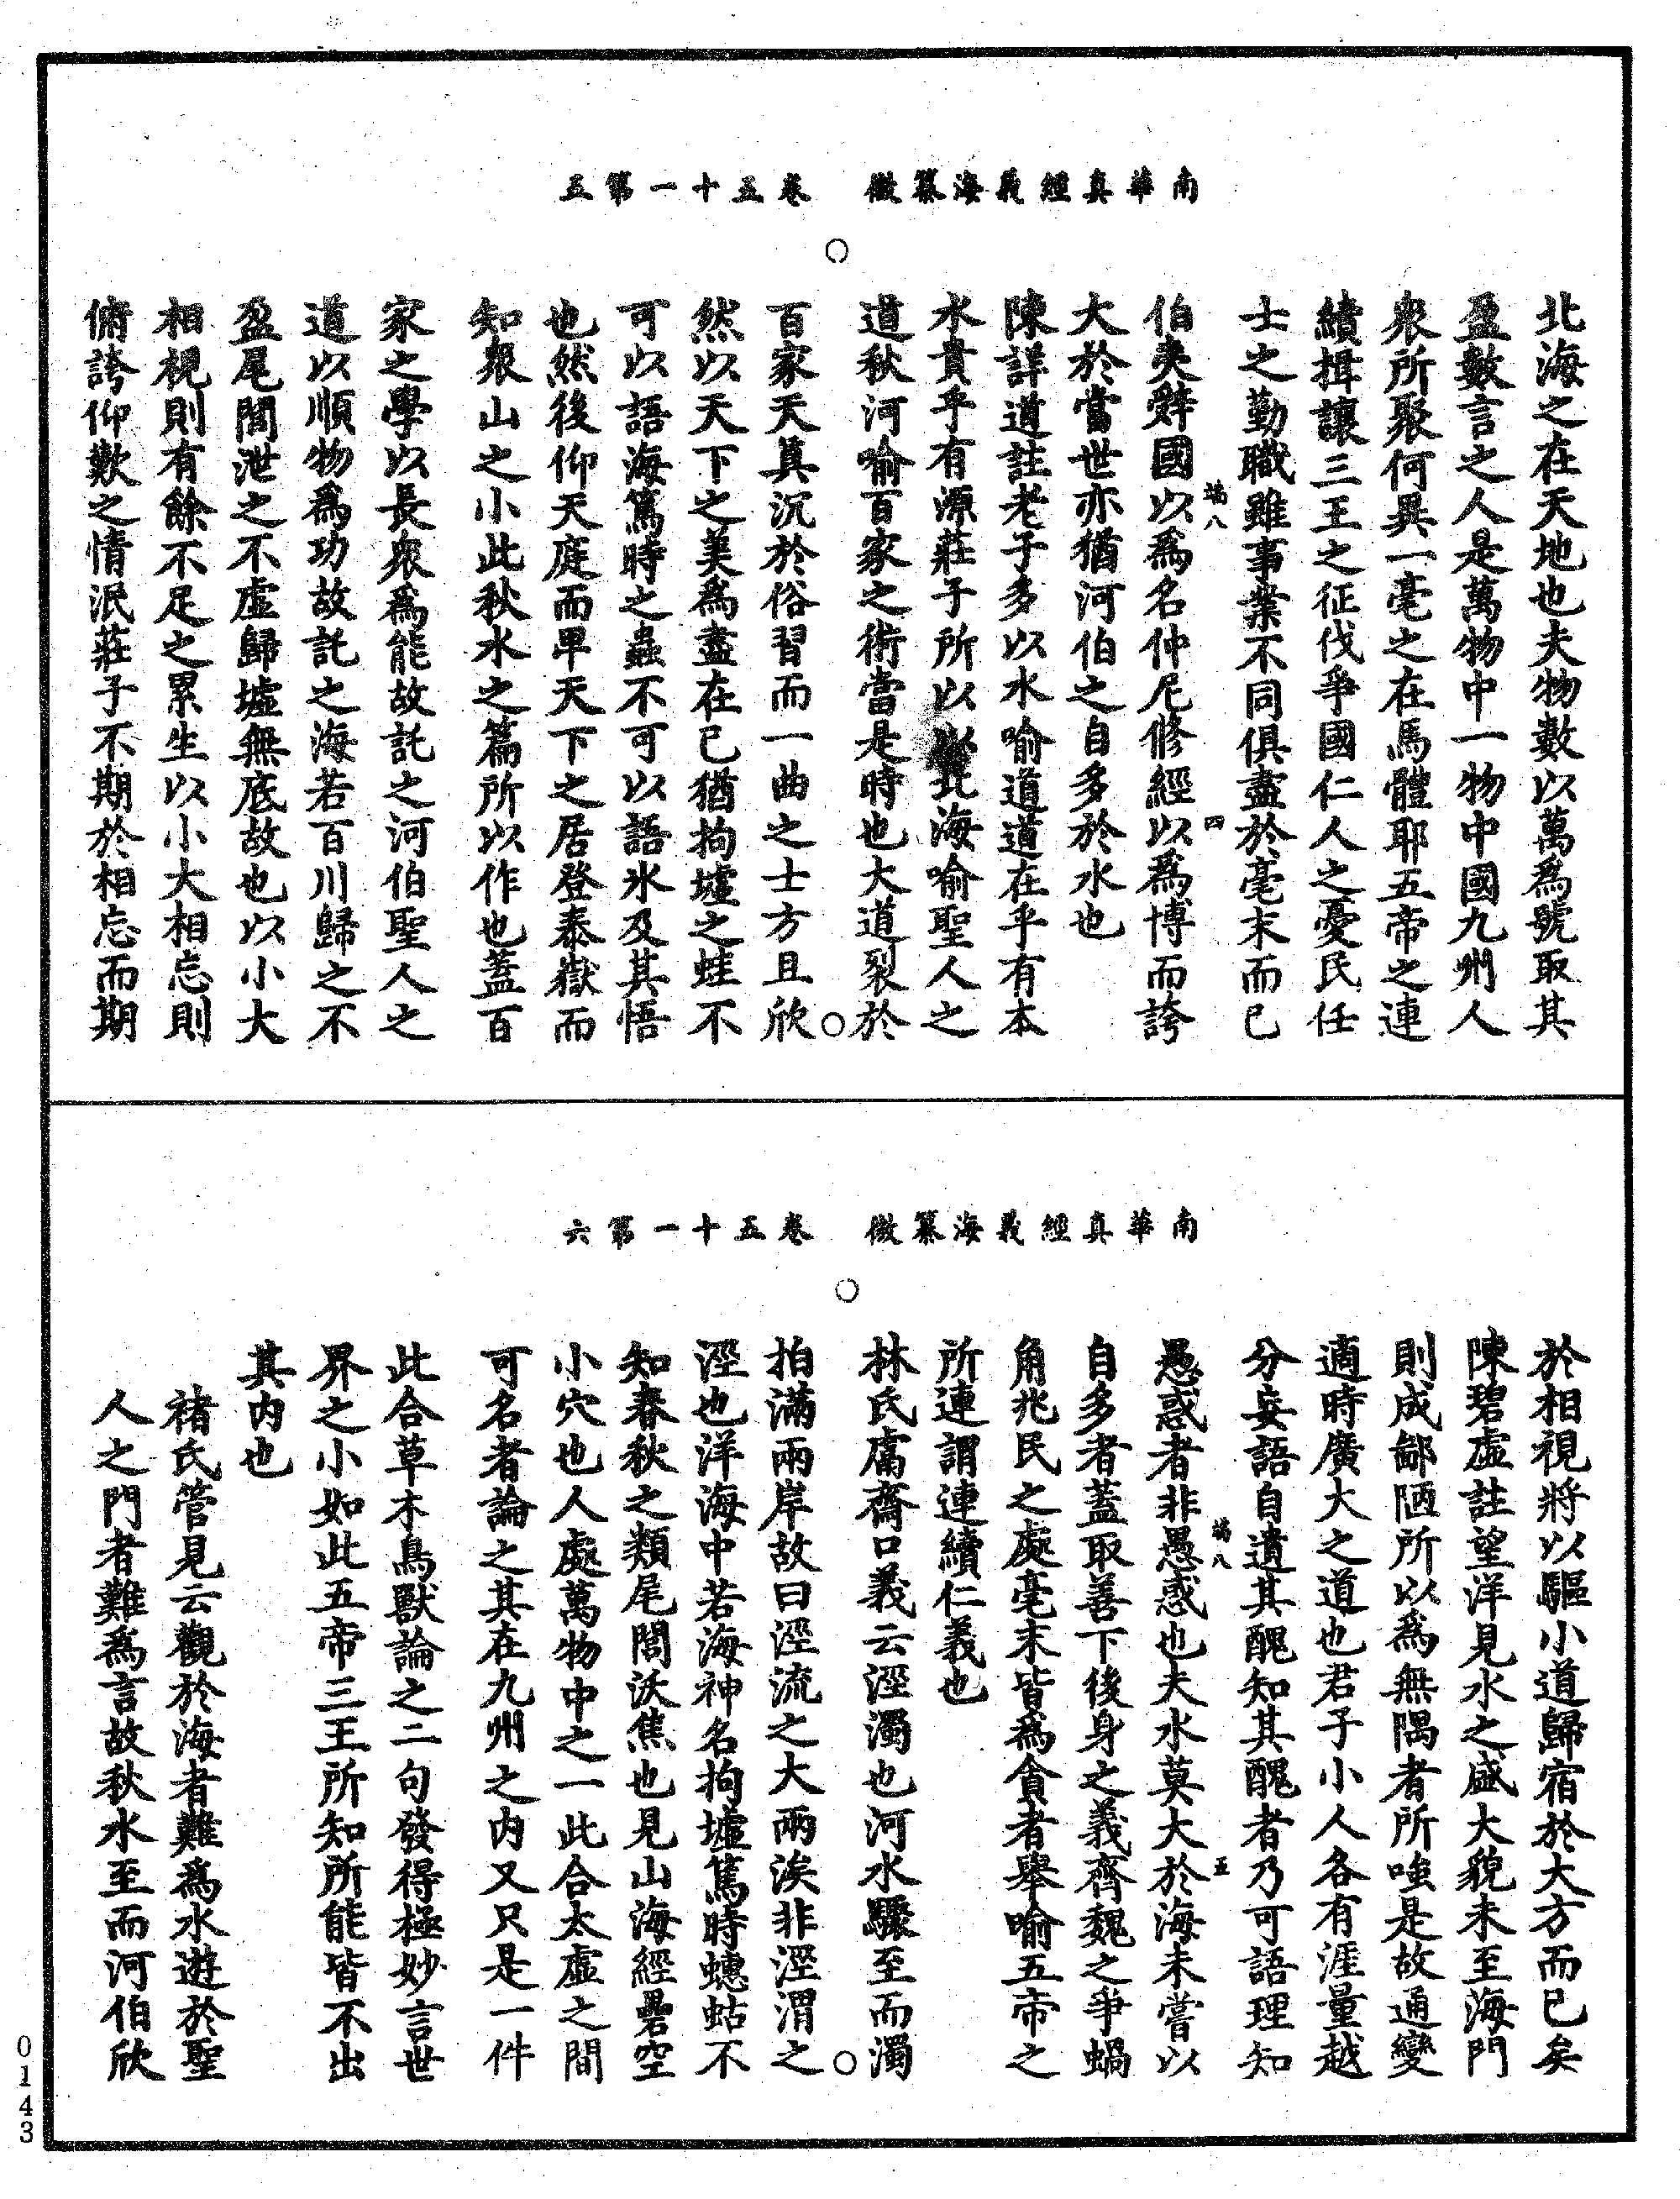 南華真經義海纂微　卷五十一第五
北海之在天地也夫物數以萬爲號取其
盈數言之人是萬物中一物中國九州人
衆所聚何異一毫之在馬體耶五帝之連
續揖讓三王之征伐爭國仁人之憂民任
士之勤職雖事業不同俱盡於毫末而已
端八　四
伯夷辭國以爲名仲尼修經以爲博而誇
大於當世亦猶河伯之自多於水也
陳詳道註老子多以水喻道道在乎有本
水貴乎有源莊子所以以北海喻聖人之
道秋河喻百家之術當是時也大道裂於
百家天真沉於俗習而一曲之士方且欣
然以天下之美爲盡在已猶拘墟之蛙不
可以語海篤時之蟲不可以語氷及其悟
也然後仰天庭而卑天下之居登泰嶽而
知衆山之小此秋水之篇所以作也蓋百
家之學以長衆爲能故託之河伯聖人之
道以順物爲功故託之海若百川歸之不
盈尾閭泄之不虛歸墟無底故也以小大
相視則有餘不足之累生以小大相忘則
俯誇仰歎之情泯莊子不期於相忘而期
南華真經義海纂微　卷五十一第六
於相視將以驅小道歸宿於大方而已矣
陳碧虛註望洋見水之盛大貌未至海門
則成鄙陋所以爲無隅者所嗤是故通變
適時廣大之道也君子小人各有涯量越
分妄語自遺其醜知其醜者乃可語理知
端八　五
愚惑者非愚惑也夫水莫大於海未嘗以
自多者蓋取善下後身之義齊魏之爭蝸
角兆民之處毫末皆爲貪者舉喻五帝之
所連謂連續仁義也
林氏鬳齋口義云涇濁也河水驟至而濁
拍滿兩岸故曰涇流之大兩涘非涇渭之
涇也洋海中若海神名拘墟篤時蟪蛄不
知春秋之類尾閭沃焦也見山海經礨空
小穴也人處萬物中之一此合太虛之間
可名者論之其在九州之内又只是一件
此合草木鳥獸論之二句發得極妙言世
界之小如此五帝三王所知所能皆不出
其内也
褚氏管見云觀於海者難爲水遊於聖
人之門者難爲言故秋水至而河伯欣
0143